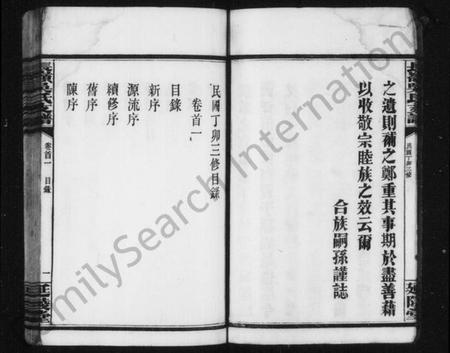 之遺則彌之鄭重其事期於盡善藉
以收敬宗睦族之效云爾
合族嗣孫謹誌
民國丁卯三修目錄
卷首一
目錄
新序
源流序
續修序
舊序
陳序
卷首一 目錄 一
FamilySearch International